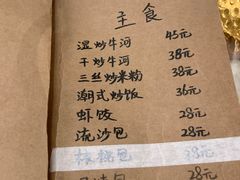 主食
湿炒牛河 45元
干炒牛河 38元
三丝炒米粉 38元
潮式炒饭 36元
虾饺 28元
流沙包 28元
核桃包 28元
28元